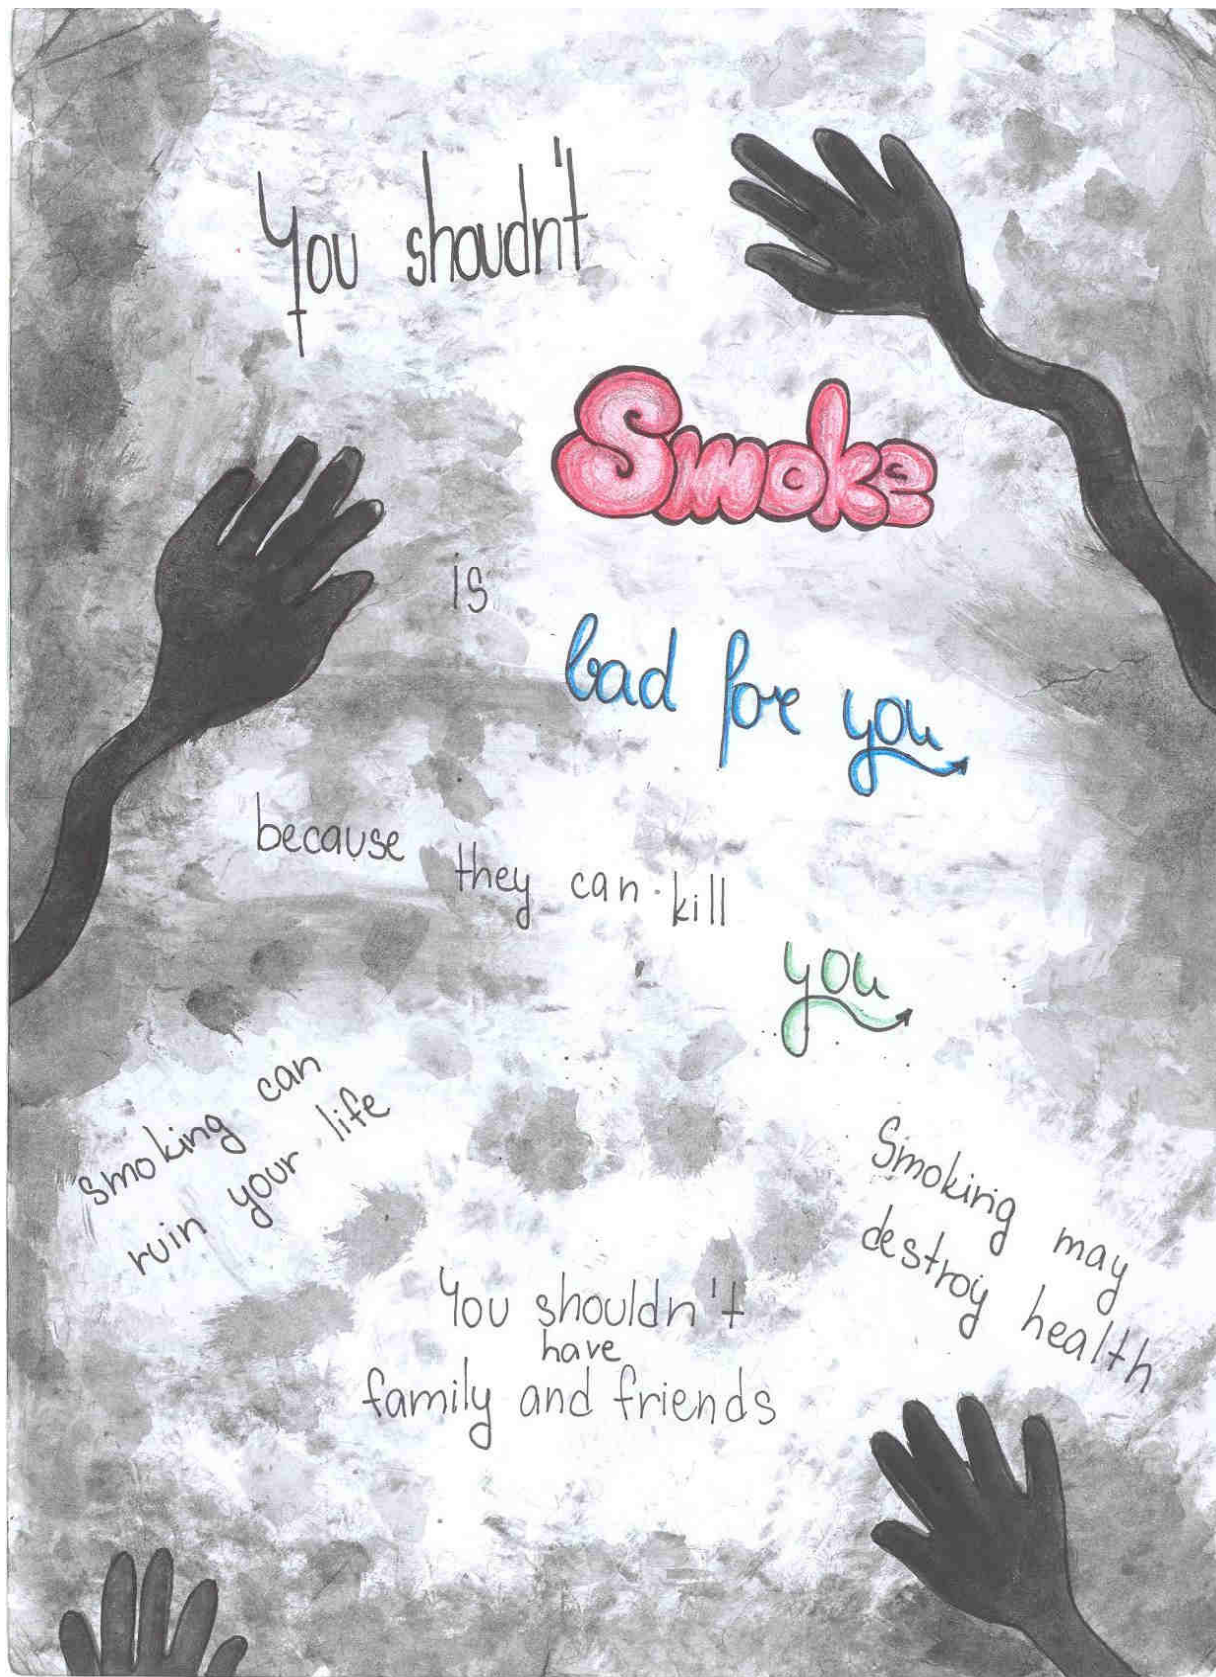 You shoudn't
Smoke
is
bad for you
because
they can kill
you
smoking can
ruin your life
Smoking may
destroy health
You shouldn't
have
family and friends